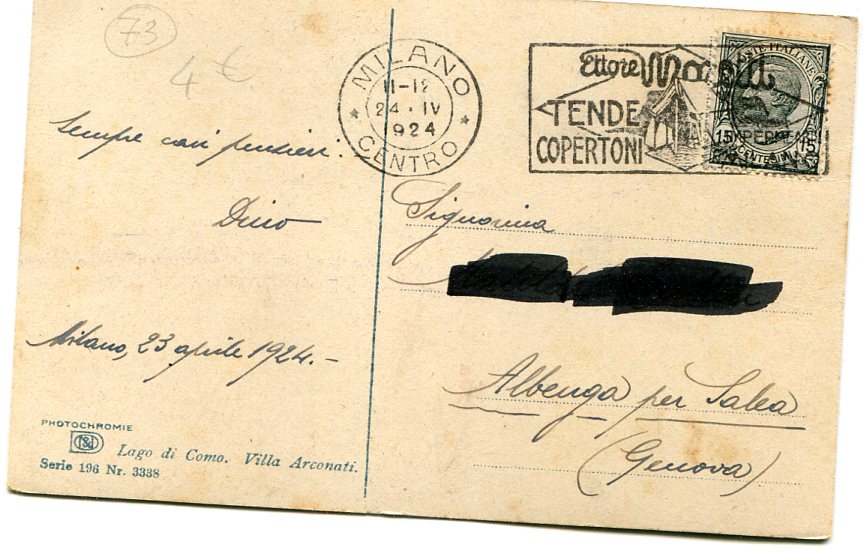 73
4 €
Sempre cari pensieri.
Dino
Milano, 23 aprile 1924.-
PHOTOCHROMIE
Lago di Como. Villa Arconati.
Serie 196 Nr. 3338
MILANO
11-12
24·IV
1924
* CENTRO *
Ettore Moretti
TENDE
COPERTONI
POSTE ITALIANE
15 15
CENTESIMI
Signorina
Albenga per Salea
(Genova)